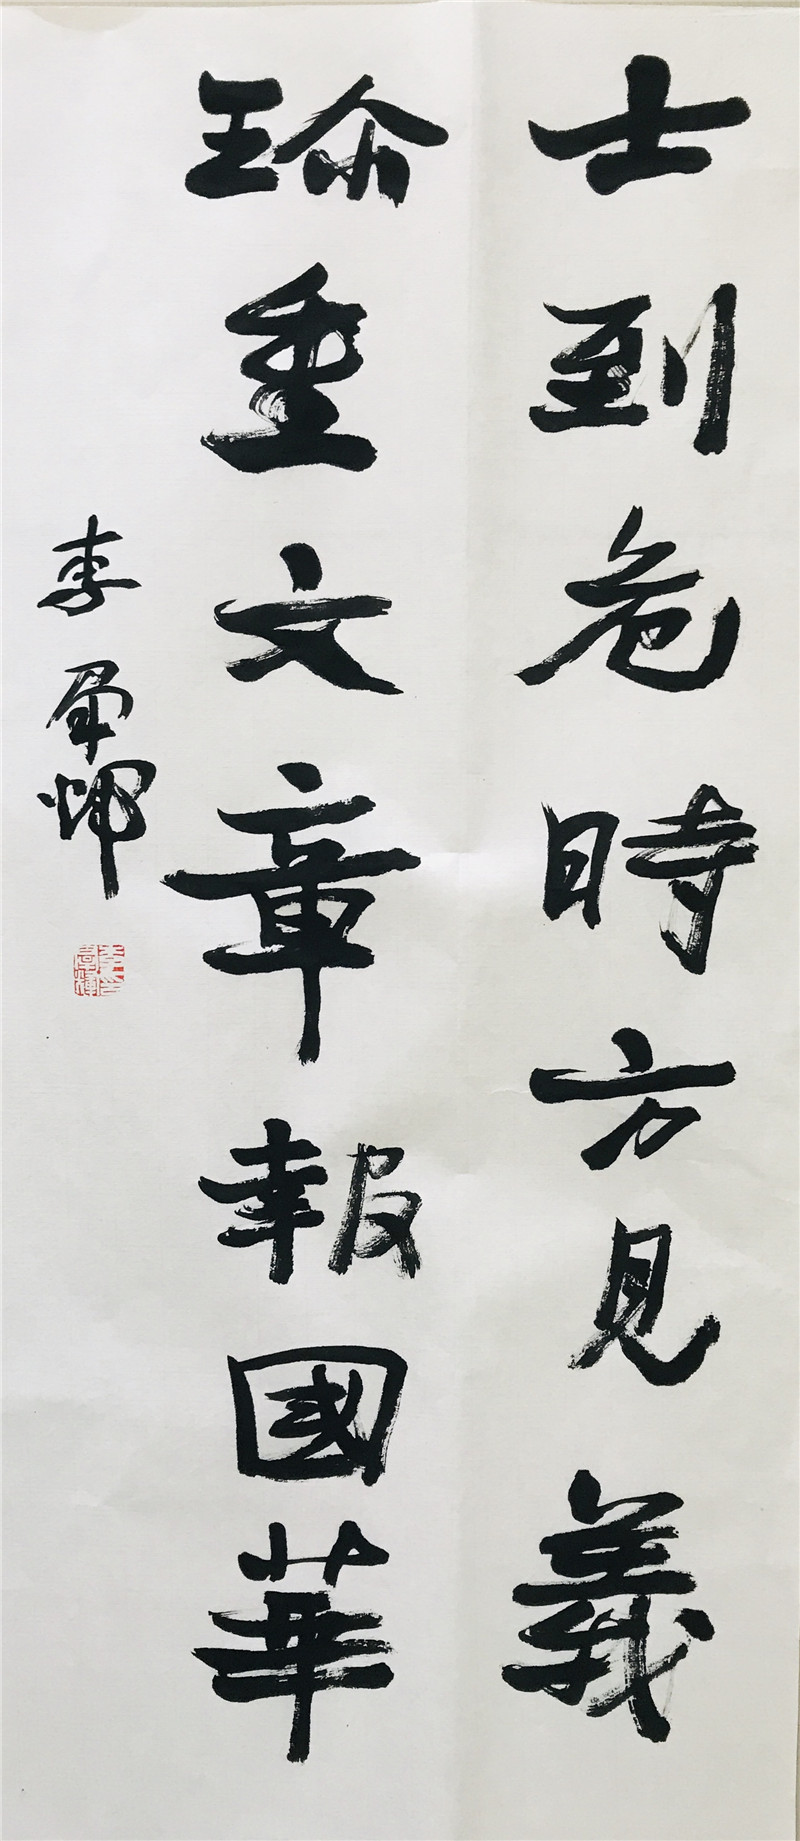 士到危時方見義
珎重文章報國華
李軍輝